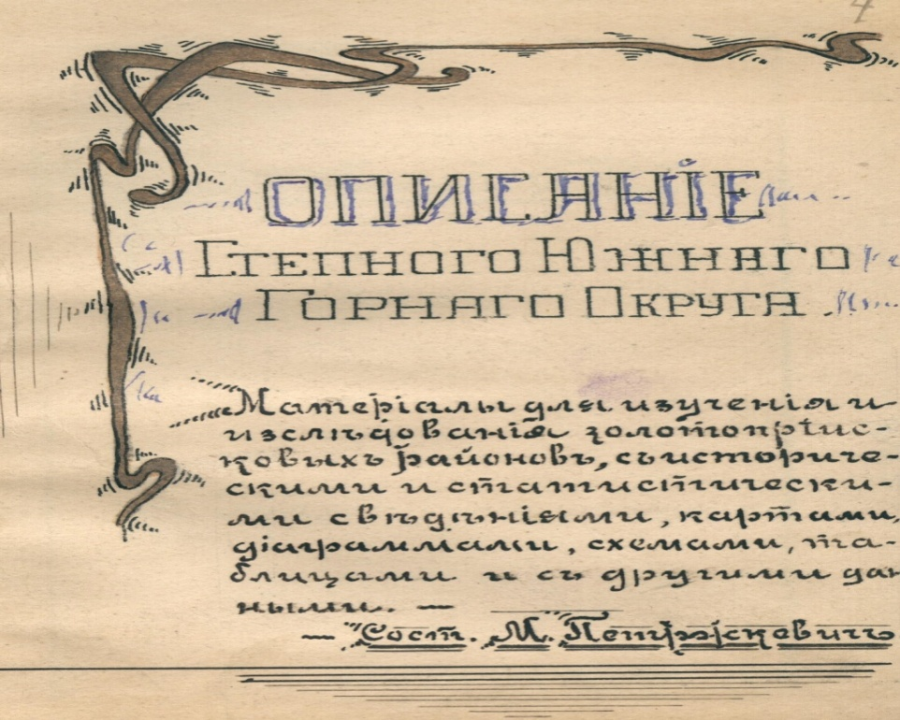 4
ОПИСАНІЕ
Степного Южнаго
Горнаго Округа
Матеріалы для изученія и
изслѣдованія золотопріис-
ковыхъ районовъ, съ историче-
скими и статистически-
ми свѣдѣніями, картами,
діаграммами, схемами, та-
блицами и съ другими дан
ными. —
— Сост. М.